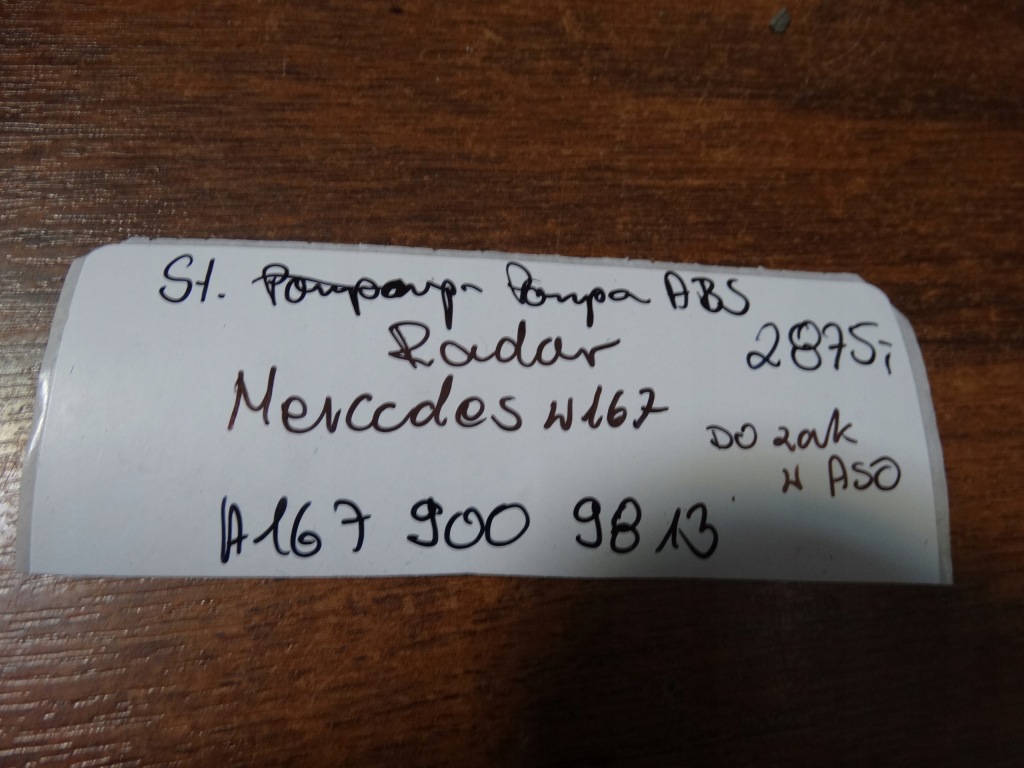 St. Pompa ABS
Radar
2875,-
Mercedes W167
DO zak
W ASO
A167 900 9813